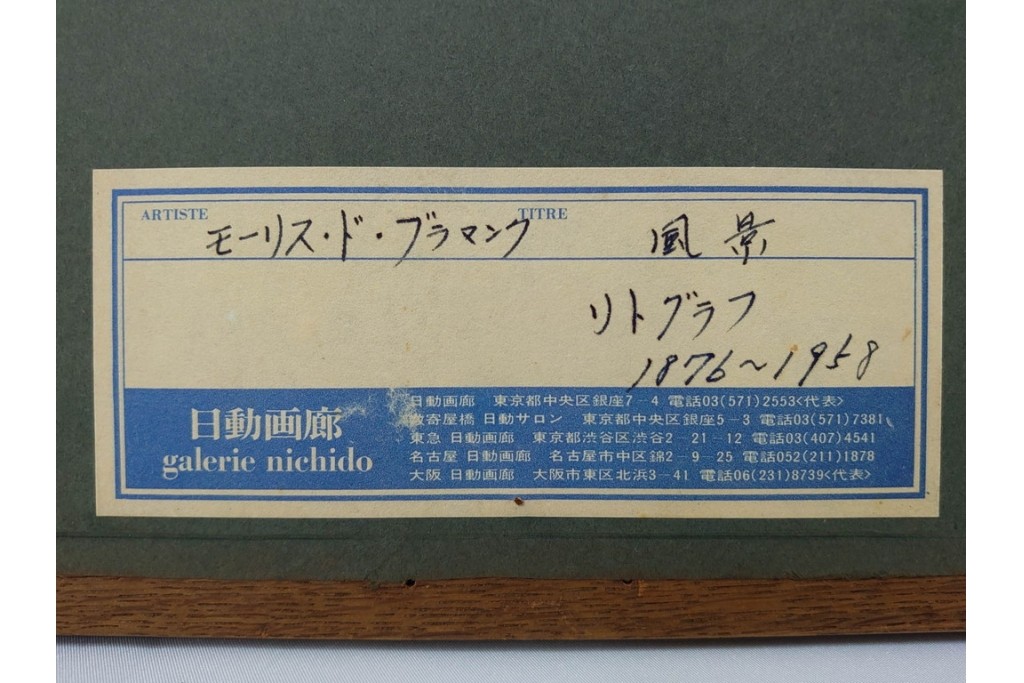 ARTISTE モーリス・ド・ブラマンク TITRE 風景
リトグラフ
1876～1958
日動画廊
galerie nichido
日動画廊 東京都中央区銀座7-4 電話03(571)2553<代表>
数寄屋橋 日動サロン 東京都中央区銀座5-3 電話03(571)7381
東急 日動画廊 東京都渋谷区渋谷2-21-12 電話03(407)4541
名古屋 日動画廊 名古屋市中区錦2-9-25 電話052(211)1878
大阪 日動画廊 大阪市東区北浜3-41 電話06(231)8739<代表>